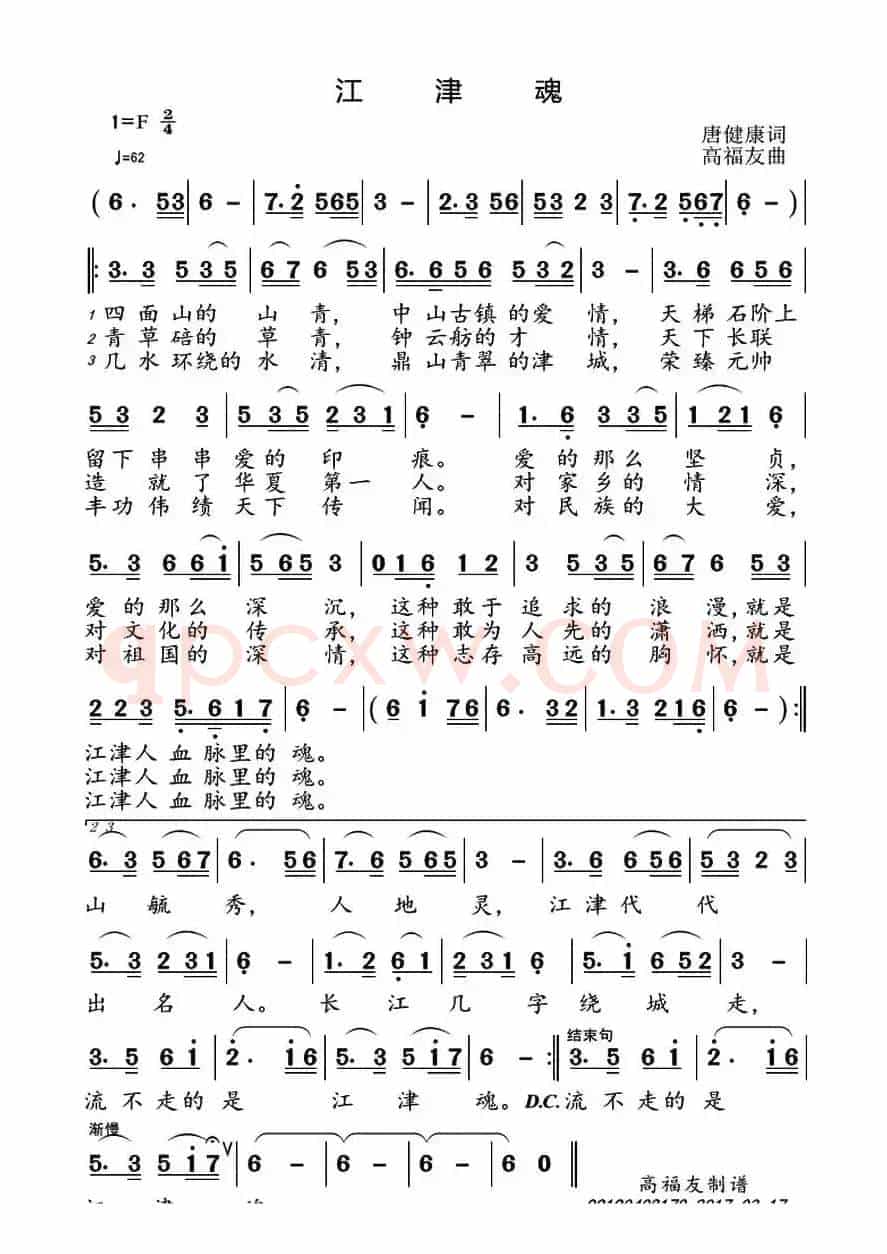 江 津 魂
1=F 2/4
♩=62
唐健康词
高福友曲
( 6 · 53 | 6 - | 7·2 565 | 3 - | 2·3 56 | 53 2 3 | 7·2 567 | 6 - )
‖: 3·3 535 | 67 6 53 | 6·656 532 | 3 - | 3·6 656
1 四面山的 山 青， 中山古镇的爱 情， 天梯石阶上
2 青草碚的 草 青， 钟云舫的才 情， 天下长联
3 几水环绕的水 清， 鼎山青翠的津 城， 荣臻元帅
53 2 3 | 535 231 | 6 - | 1·6 335 | 121 6
留下串串爱的印 痕。 爱的那么 坚 贞，
造 就了华夏第一人。 对家乡的情 深，
丰功伟绩天下传 闻。 对民族的大 爱，
5·3 661 | 565 3 | 016 12 | 3 535 | 67 6 53
爱的那么 深 沉， 这种敢于 追求的 浪 漫，就是
对文化的 传 承， 这种敢为 人先的 潇 洒，就是
对祖国的 深 情， 这种志存 高远的 胸 怀，就是
223 5·617 | 6 - | ( 6 i 76 | 6· 32 | 1·3 216 | 6 - ) :‖
江津人血脉里的 魂。
江津人血脉里的 魂。
江津人血脉里的 魂。
2 3
6·3 567 | 6 · 56 | 7·6 565 | 3 - | 3·6 656 | 53 2 3
山 毓 秀， 人 地 灵， 江津代 代
5·3 231 | 6 - | 1·2 61 | 231 6 | 5·i 652 | 3 -
出 名 人。 长 江 几 字 绕 城 走，
结束句
3·5 6i | 2· i6 | 5·3 5i7 | 6 - :‖ 3·5 6i | 2· i6
流不走的是 江 津 魂。D.C.流不走的是
渐慢
5·3 5i7 V | 6 - | 6 - | 6 - | 6 0 ‖
高福友制谱
qpcxw.COM